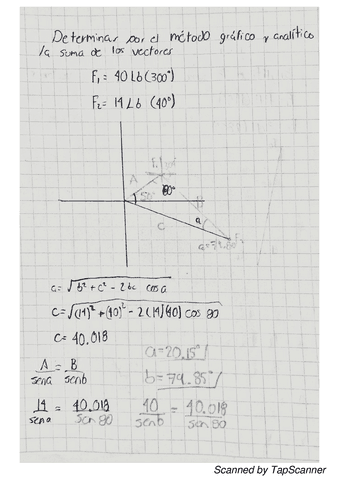 Determinar por el método gráfico y analítico
la suma de los vectores
F₁ = 40 Lb (300°)
F₂ = 14 Lb (40°)
A
50°
80°
B
a
C
c = √b² + c² - 2bc cos a
C = √(14)² + (40)² - 2(14)(40) cos 80
C = 40.018
A/sen a = B/sen b
a = 20.15°
b = 79.85°
14/sen a = 40.018/sen 80
40/sen b = 40.018/sen 80
Scanned by TapScanner